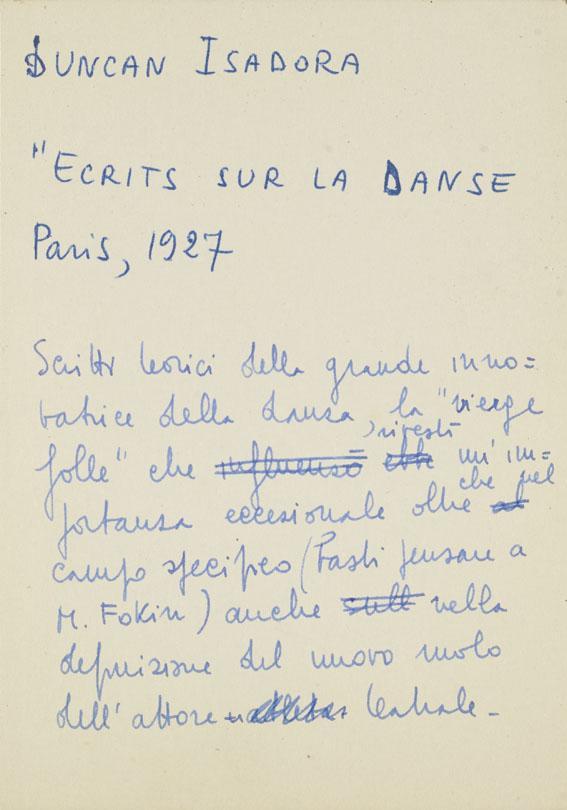 DUNCAN ISADORA
"ECRITS SUR LA DANSE
Paris, 1927
Scritti teorici della grande inno=
vatrice della danza, la "vierge
folle" che rivestì un'im=
portanza eccezionale oltre che nel
campo specifico (basti pensare a
M. Fokin) anche nella
definizione del nuovo ruolo
dell'attore teatrale.